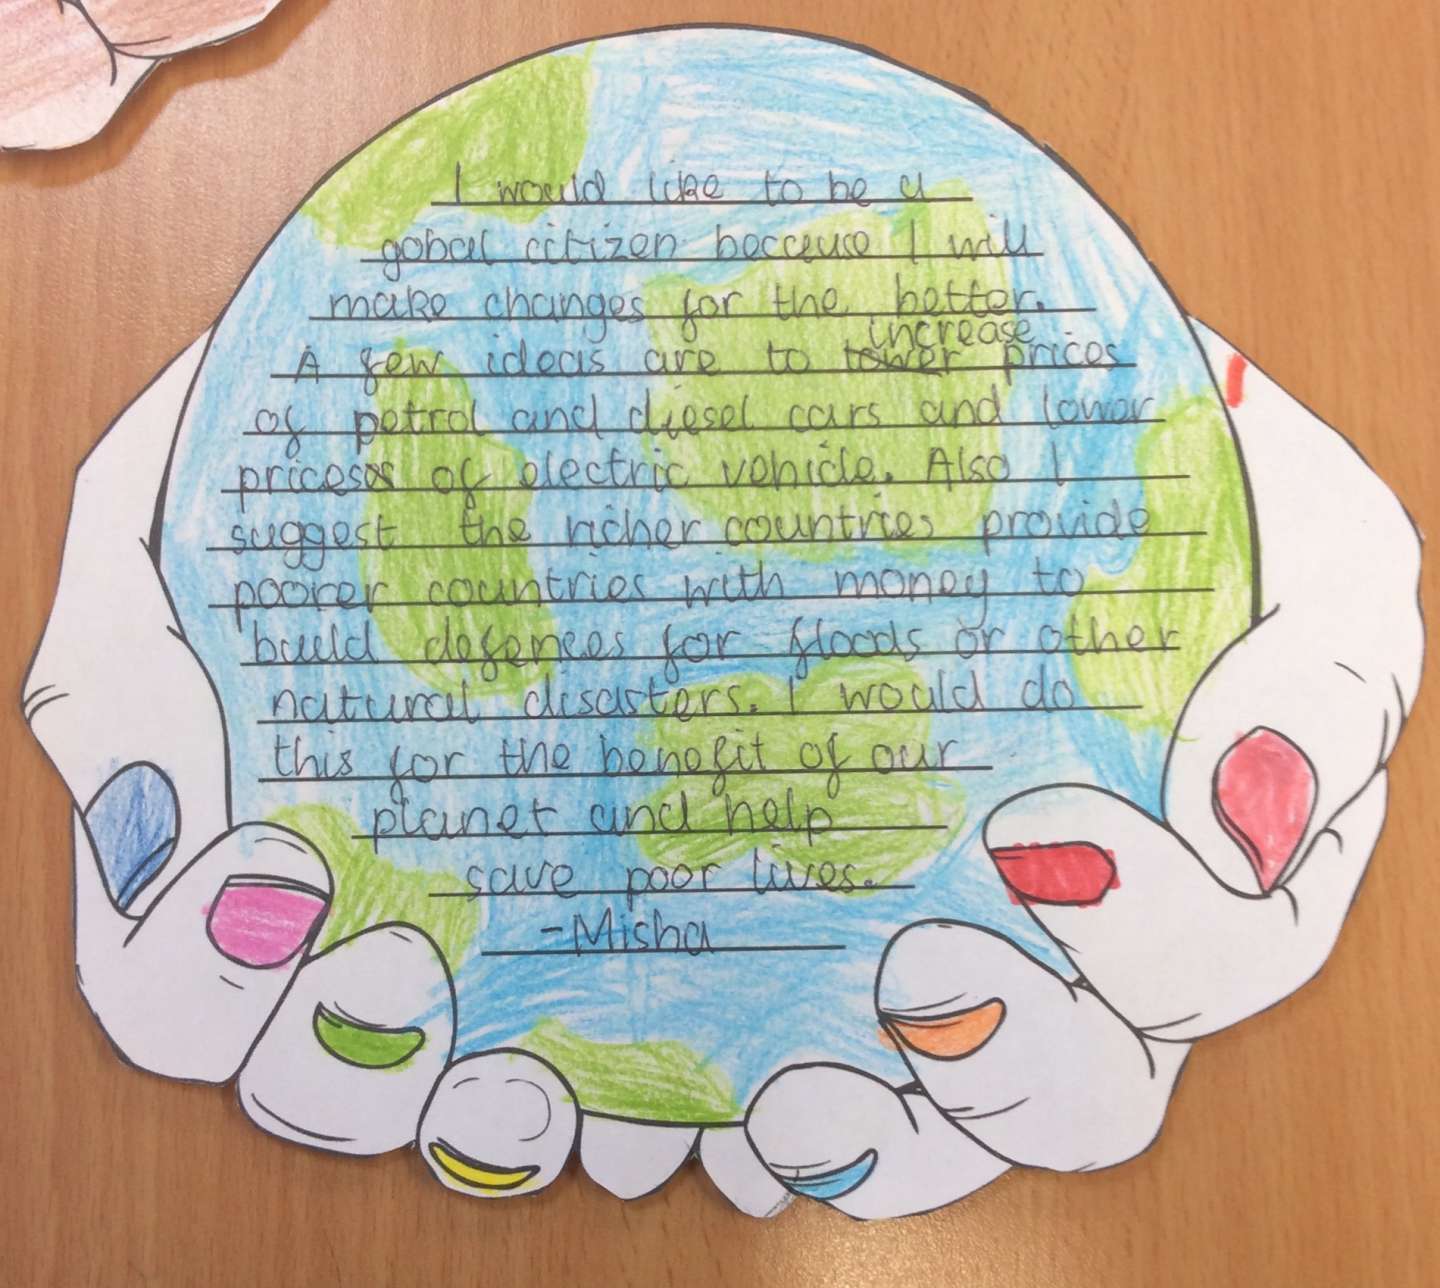 I would like to be a
gobal citizen because I will
make changes for the better.
A few ideas are to increase prices
of petrol and diesel cars and lower
prices of electric vehicle. Also I
suggest the richer countries provide
poorer countries with money to
build defences for floods or other
natural disasters. I would do
this for the benefit of our
planet and help
save poor lives.
-Misha